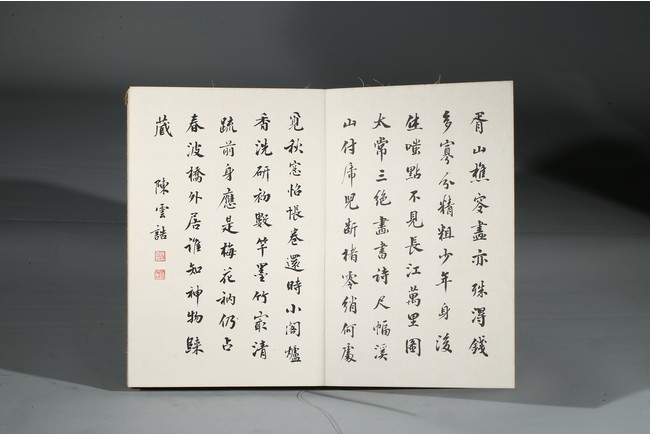 胥山樵客畫亦殊得錢
多寡分精粗少年身後
嗤點不見長江萬里圖
太常三絕畫書詩尺幅溪
山付虎兒斷楮零綃何處
覓秋窓怊悵卷還時小閣爐
香洗研初數竿墨竹最清
疏前身應是梅花衲仍占
春波橋外居誰知神物歸
藏 陳雲誥